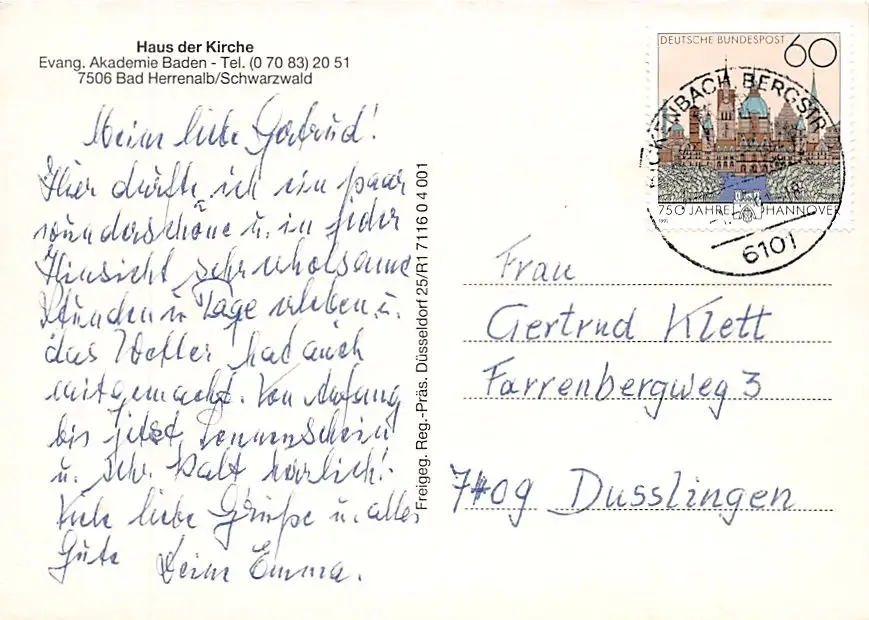 Haus der Kirche
Evang. Akademie Baden - Tel. (0 70 83) 20 51
7506 Bad Herrenalb/Schwarzwald
Meine liebe Gertrud!
Hier durfte ich ein paar
wunderschöne u. in jeder
Hinsicht sehr erholsame
Stunden u. Tage erleben u.
das Wetter hat auch
mitgemacht. Von Anfang
bis jetzt Sonnenschein
u. sehr kalt herrlich!
Viele liebe Grüße u. alles
Gute Deine Emma.
Freigeg. Reg.-Präs. Düsseldorf 25/R1 7116 0 4 001
DEUTSCHE BUNDESPOST 60
750 JAHRE HANNOVER
1991
BICKENBACH BERGSTR
6101
Frau
Gertrud Klett
Farrenbergweg 3
7409 Dusslingen